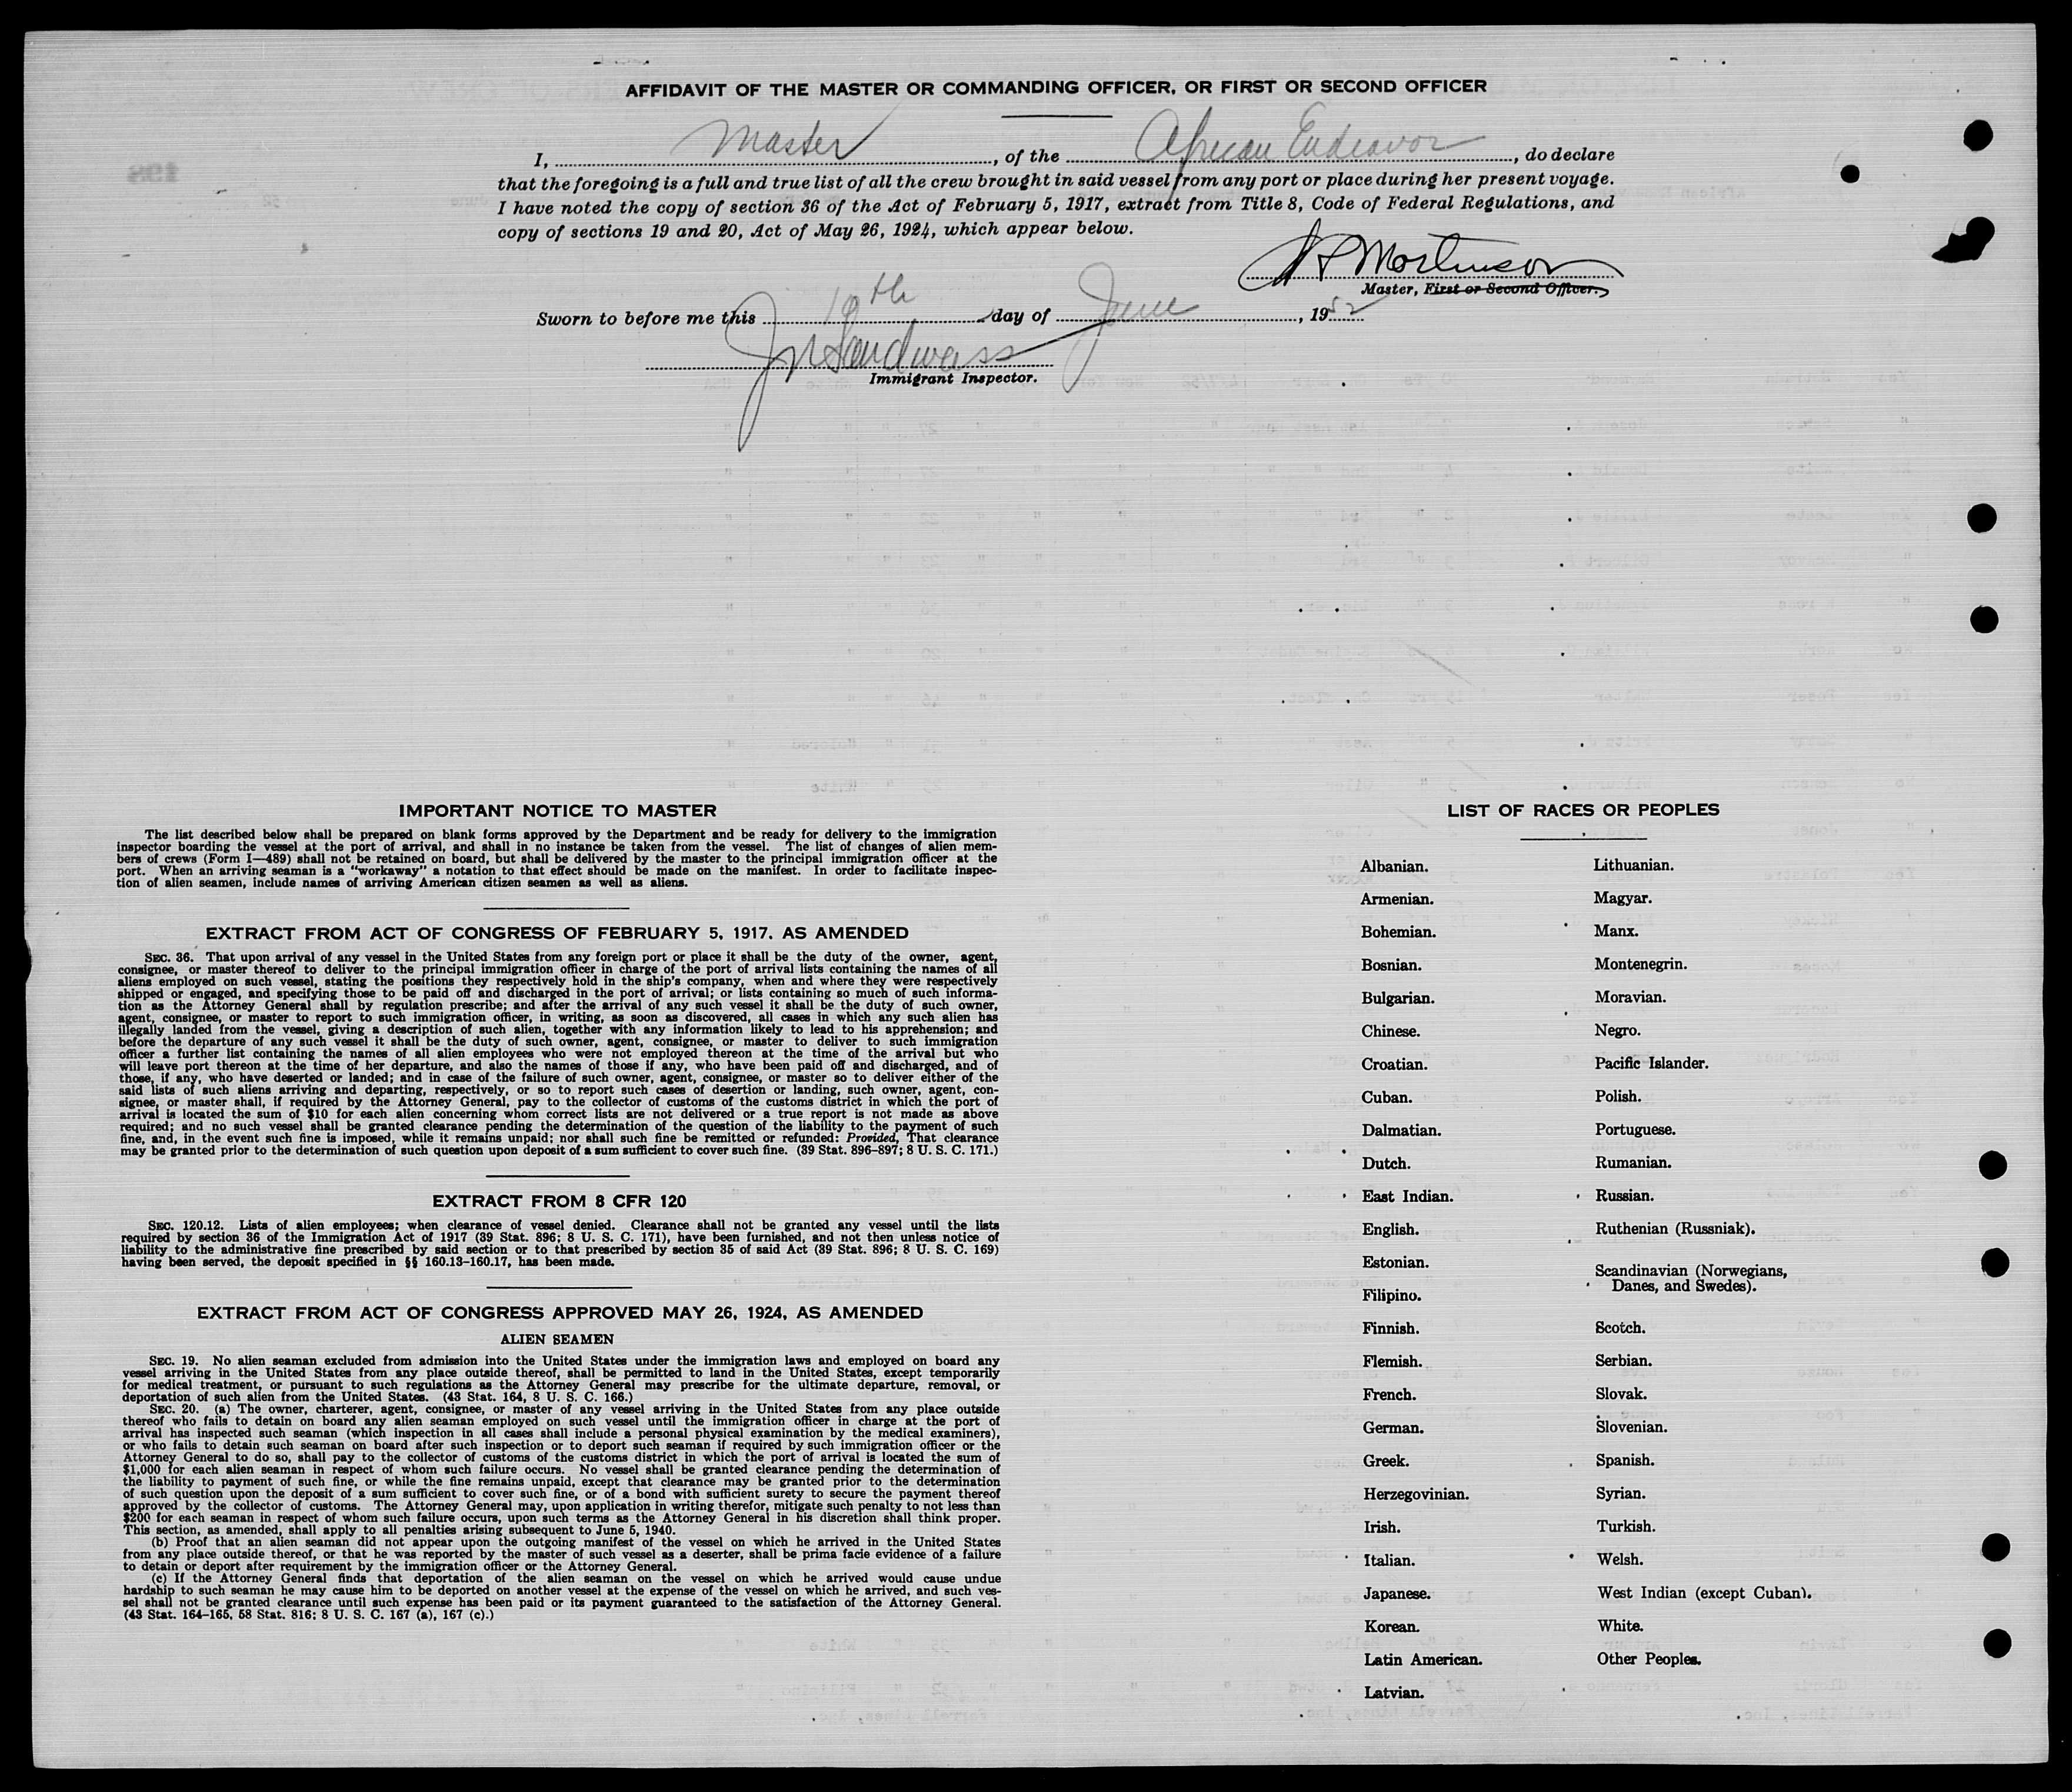 AFFIDAVIT OF THE MASTER OR COMMANDING OFFICER, OR FIRST OR SECOND OFFICER
I, Master, of the African Endeavor, do declare
that the foregoing is a full and true list of all the crew brought in said vessel from any port or place during her present voyage.
I have noted the copy of section 36 of the Act of February 5, 1917, extract from Title 8, Code of Federal Regulations, and
copy of sections 19 and 20, Act of May 26, 1924, which appear below.
Mortinson
Master, First or Second Officer.
Sworn to before me this 19th day of June, 1952
Immigrant Inspector.
IMPORTANT NOTICE TO MASTER
The list described below shall be prepared on blank forms approved by the Department and be ready for delivery to the immigration
inspector boarding the vessel at the port of arrival, and shall in no instance be taken from the vessel. The list of changes of alien mem-
bers of crews (Form I—489) shall not be retained on board, but shall be delivered by the master to the principal immigration officer at the
port. When an arriving seaman is a "workaway" a notation to that effect should be made on the manifest. In order to facilitate inspec-
tion of alien seamen, include names of arriving American citizen seamen as well as aliens.
EXTRACT FROM ACT OF CONGRESS OF FEBRUARY 5, 1917, AS AMENDED
SEC. 36. That upon arrival of any vessel in the United States from any foreign port or place it shall be the duty of the owner, agent,
consignee, or master thereof to deliver to the principal immigration officer in charge of the port of arrival lists containing the names of all
aliens employed on such vessel, stating the positions they respectively hold in the ship's company, when and where they were respectively
shipped or engaged, and specifying those to be paid off and discharged in the port of arrival; or lists containing so much of such informa-
tion as the Attorney General shall by regulation prescribe; and after the arrival of any such vessel it shall be the duty of such owner,
agent, consignee, or master to report to such immigration officer, in writing, as soon as discovered, all cases in which any such alien has
illegally landed from the vessel, giving a description of such alien, together with any information likely to lead to his apprehension; and
before the departure of any such vessel it shall be the duty of such owner, agent, consignee, or master to deliver to such immigration
officer a further list containing the names of all alien employees who were not employed thereon at the time of the arrival but who
will leave port thereon at the time of her departure, and also the names of those if any, who have been paid off and discharged, and of
those, if any, who have deserted or landed; and in case of the failure of such owner, agent, consignee, or master so to deliver either of the
said lists of such aliens arriving and departing, respectively, or so to report such cases of desertion or landing, such owner, agent, con-
signee, or master shall, if required by the Attorney General, pay to the collector of customs of the customs district in which the port of
arrival is located the sum of $10 for each alien concerning whom correct lists are not delivered or a true report is not made as above
required; and no such vessel shall be granted clearance pending the determination of the question of the liability to the payment of such
fine, and, in the event such fine is imposed, while it remains unpaid; nor shall such fine be remitted or refunded: Provided, That clearance
may be granted prior to the determination of such question upon deposit of a sum sufficient to cover such fine. (39 Stat. 896–897; 8 U. S. C. 171.)
EXTRACT FROM 8 CFR 120
SEC. 120.12. Lists of alien employees; when clearance of vessel denied. Clearance shall not be granted any vessel until the lists
required by section 36 of the Immigration Act of 1917 (39 Stat. 896; 8 U. S. C. 171), have been furnished, and not then unless notice of
liability to the administrative fine prescribed by said section or to that prescribed by section 35 of said Act (39 Stat. 896; 8 U. S. C. 169)
having been served, the deposit specified in §§ 160.13–160.17, has been made.
EXTRACT FROM ACT OF CONGRESS APPROVED MAY 26, 1924, AS AMENDED
ALIEN SEAMEN
SEC. 19. No alien seaman excluded from admission into the United States under the immigration laws and employed on board any
vessel arriving in the United States from any place outside thereof, shall be permitted to land in the United States, except temporarily
for medical treatment, or pursuant to such regulations as the Attorney General may prescribe for the ultimate departure, removal, or
deportation of such alien from the United States. (43 Stat. 164, 8 U. S. C. 166.)
SEC. 20. (a) The owner, charterer, agent, consignee, or master of any vessel arriving in the United States from any place outside
thereof who fails to detain on board any alien seaman employed on such vessel until the immigration officer in charge at the port of
arrival has inspected such seaman (which inspection in all cases shall include a personal physical examination by the medical examiners),
or who fails to detain such seaman on board after such inspection or to deport such seaman if required by such immigration officer or the
Attorney General to do so, shall pay to the collector of customs of the customs district in which the port of arrival is located the sum of
$1,000 for each alien seaman in respect of whom such failure occurs. No vessel shall be granted clearance pending the determination of
the liability to payment of such fine, or while the fine remains unpaid, except that clearance may be granted prior to the determination
of such question upon the deposit of a sum sufficient to cover such fine, or of a bond with sufficient surety to secure the payment thereof
approved by the collector of customs. The Attorney General may, upon application in writing therefor, mitigate such penalty to not less than
$200 for each seaman in respect of whom such failure occurs, upon such terms as the Attorney General in his discretion shall think proper.
This section, as amended, shall apply to all penalties arising subsequent to June 5, 1940.
(b) Proof that an alien seaman did not appear upon the outgoing manifest of the vessel on which he arrived in the United States
from any place outside thereof, or that he was reported by the master of such vessel as a deserter, shall be prima facie evidence of a failure
to detain or deport after requirement by the immigration officer or the Attorney General.
(c) If the Attorney General finds that deportation of the alien seaman on the vessel on which he arrived would cause undue
hardship to such seaman he may cause him to be deported on another vessel at the expense of the vessel on which he arrived, and such ves-
sel shall not be granted clearance until such expense has been paid or its payment guaranteed to the satisfaction of the Attorney General.
(43 Stat. 164–165, 58 Stat. 816; 8 U. S. C. 167 (a), 167 (c).)
LIST OF RACES OR PEOPLES
Albanian.
Armenian.
Bohemian.
Bosnian.
Bulgarian.
Chinese.
Croatian.
Cuban.
Dalmatian.
Dutch.
East Indian.
English.
Estonian.
Filipino.
Finnish.
Flemish.
French.
German.
Greek.
Herzegovinian.
Irish.
Italian.
Japanese.
Korean.
Latin American.
Latvian.
Lithuanian.
Magyar.
Manx.
Montenegrin.
Moravian.
Negro.
Pacific Islander.
Polish.
Portuguese.
Rumanian.
Russian.
Ruthenian (Russniak).
Scandinavian (Norwegians,
Danes, and Swedes).
Scotch.
Serbian.
Slovak.
Slovenian.
Spanish.
Syrian.
Turkish.
Welsh.
West Indian (except Cuban).
White.
Other Peoples.